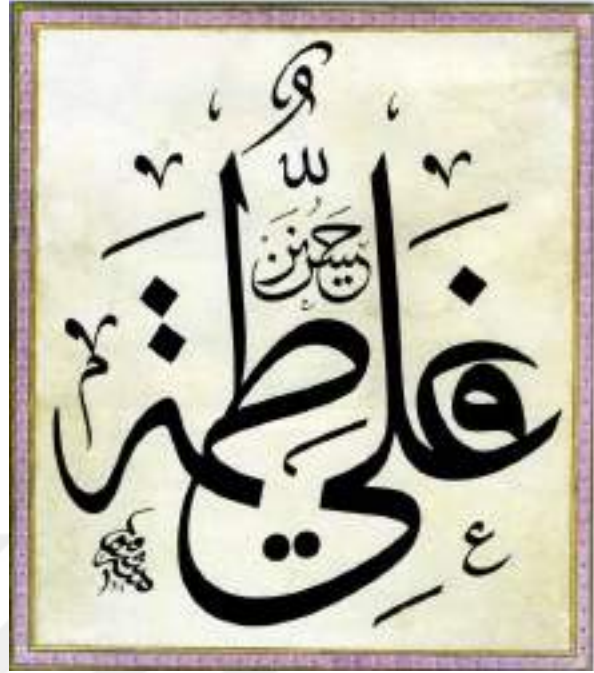 لله
حسن حسين
علي فاطمة